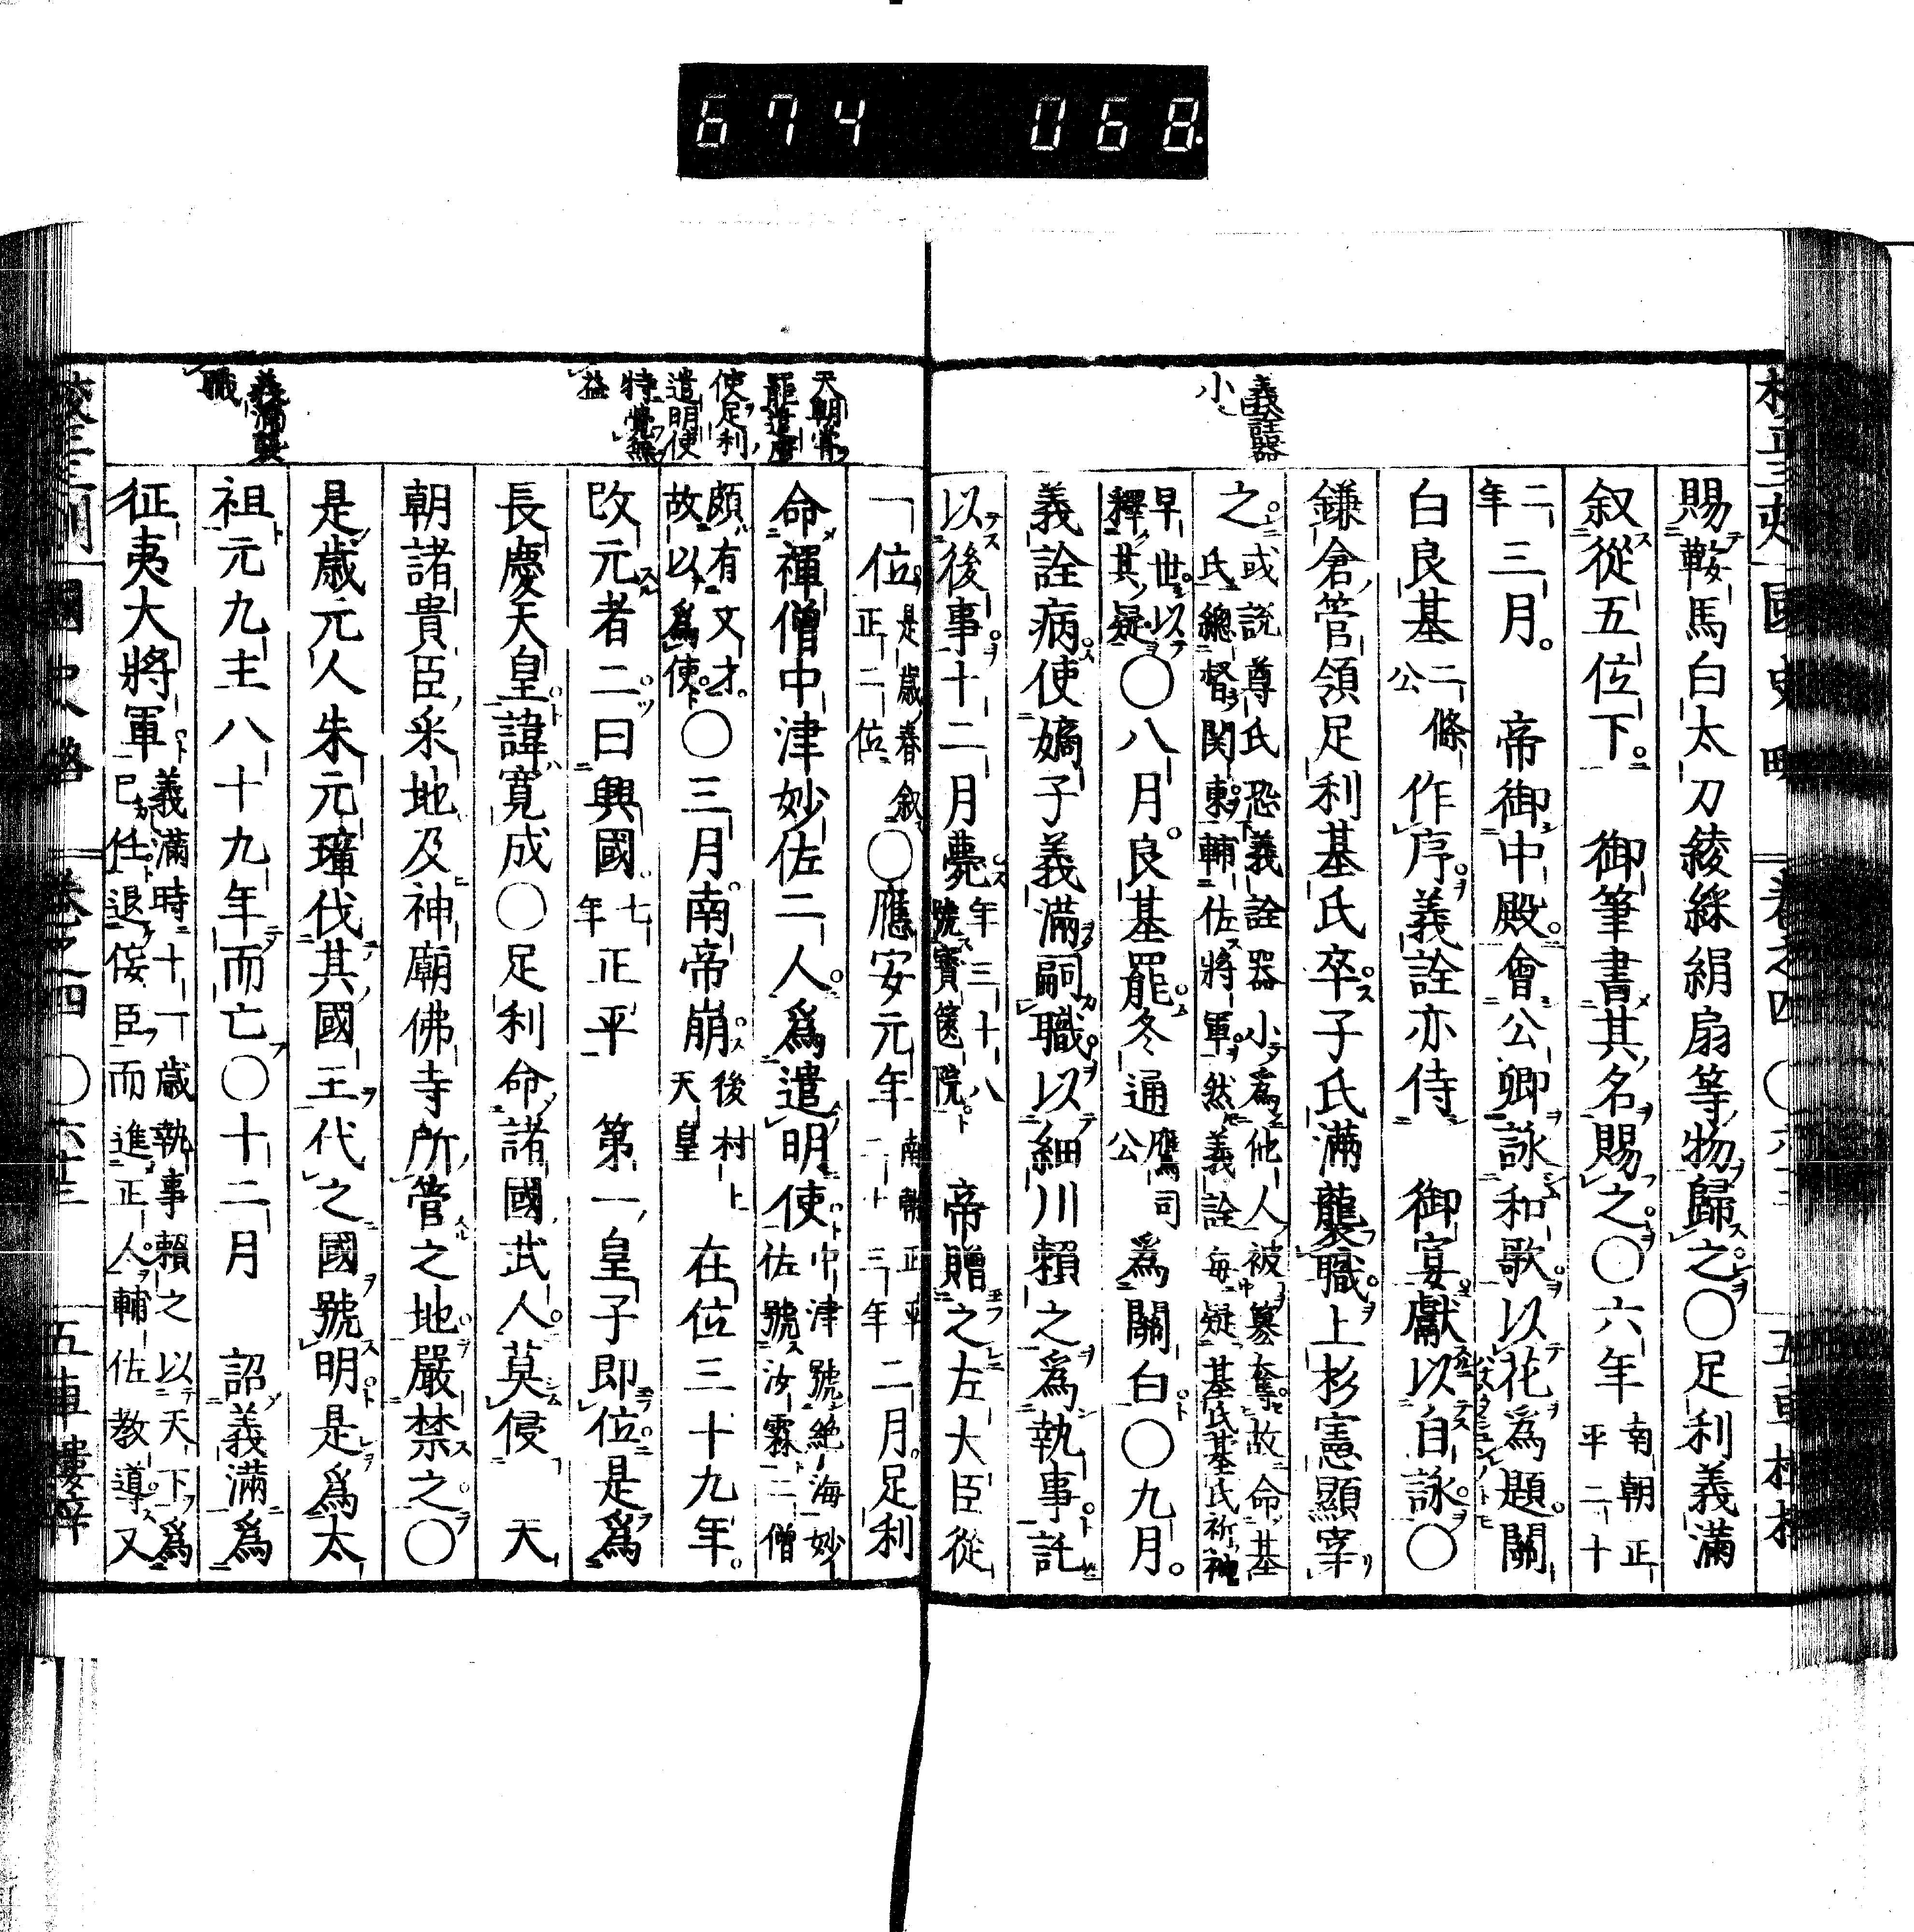 674 068.
賜鞍馬白太刀綾綵絹扇等物歸之〇足利義滿
叙從五位下。 御筆書其名賜之〇六年南朝正平二十
二年三月。 帝御中殿會公卿詠和歌以花爲題。關
白良基二條公作序義詮亦侍 御宴獻以自詠〇
鎌倉管領足利基氏卒子氏滿襲職上杉憲顯宰
之或説尊氏恐義詮器小爲他人被簒奪故命基氏總督関東輔佐將軍然義詮毎疑基氏基氏祈神
早世以釋其疑〇八月良基罷冬通鷹司公爲關白〇九月。
義詮病使嫡子義滿嗣職以細川賴之爲執事託
以後事十二月薨年三十八號寶篋院 帝贈之左大臣從
義詮器小
一位是歳春叙正二位〇應安元年南朝正平二十三年二月足利
命禪僧中津妙佐二人爲遣明使中津號絶海妙佐號汝霖二僧
頗有文才故以爲使〇三月南帝崩後村上天皇在位三十九年。
改元者二曰興國七年正平 第一皇子即位是爲
長慶天皇諱寛成〇足利命諸國武人莫侵 天
朝諸貴臣采地及神廟佛寺所管之地嚴禁之〇
是歳元人朱元璋伐其國王代之國號明是爲太
祖元九主八十九年而亡〇十二月 詔義滿爲
征夷大將軍義滿時十一歳執事賴之以天下爲己任退佞臣而進正人輔佐教導又
天朝嘗罷遣唐使足利遣明使特覺無益
義滿襲職
國史略 卷之四 〇六十三 五車樓梓